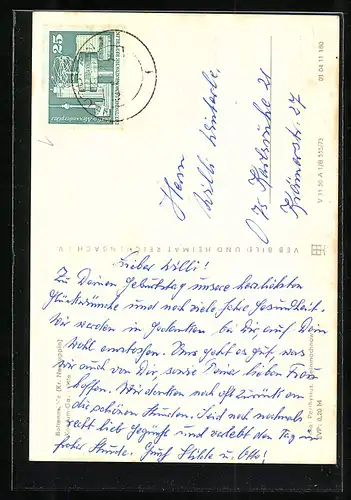 25
Herrn
Willi
75 Karlsruhe 21
VEB BILD UND HEIMAT REICHENBACH I. V.
V 11 50 A 1/B
01 04 11 180
Lieber Willi!
Zu Deinem Geburtstag unsere herzlichsten
Glückwünsche und noch viele frohe Gesundheit.
Wir werden in Gedanken bei Dir, auf Dein
Wohl anstossen. Uns geht es gut, was
wir auch von Dir, sowie Deiner lieben Frau
hoffen. Wir denken noch oft zurück an
die schönen Stunden. Seid noch nochmals
recht lieb gegrüßt und verlebt den Tag in
froher Stunde. Eure u. Otto!
0,20 M